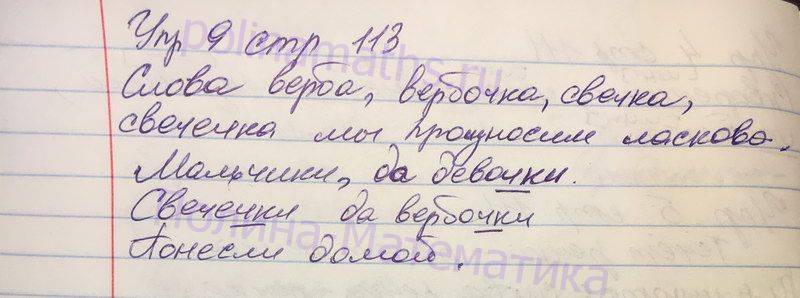 Упр 9 стр 113
Слова верба, вербочка, свечка,
свечечка мы произносим ласково.
Мальчики, да девочки.
Свечечки да вербочки
Понесли домой.
polinamaths.ru
Полина Математика